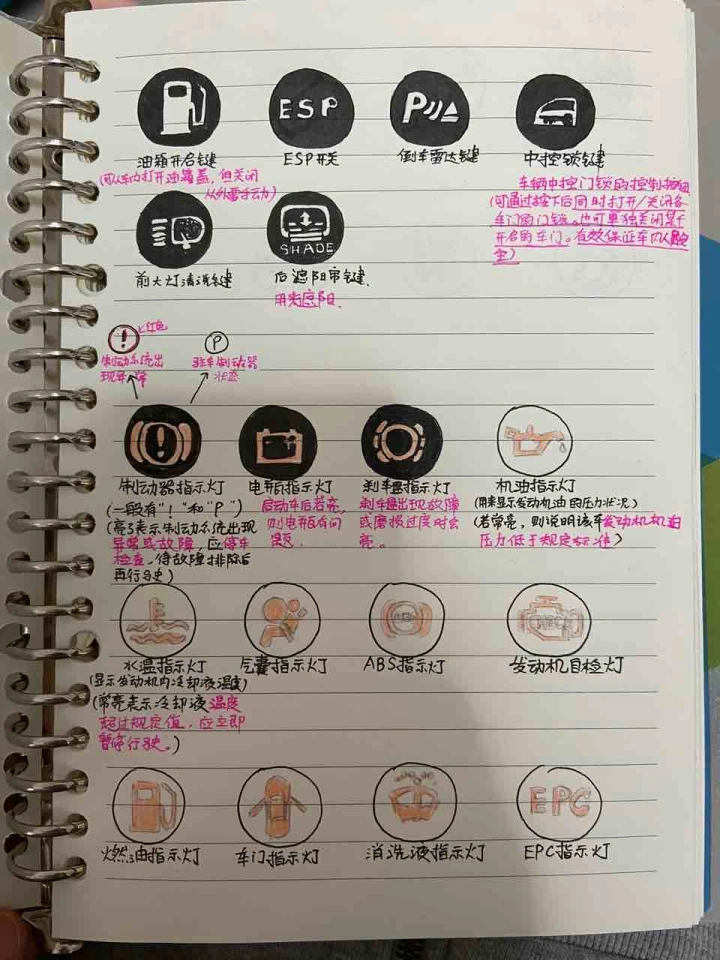 ESP
P
油箱开启键
ESP开关
倒车雷达键
中控锁键
(可从车内打开油箱盖，但关闭
从外需手动)
车辆中控门锁的控制按钮
(可通过按下后同时打开/关闭各
车门的门锁。也可单独关闭某个
开启的车门。有效保证车内人员安
全)
SHADE
前大灯清洗键
后遮阳帘键
用来遮阳.
! 红色
P
制动系统出
现异常
驻车制动器
状态
!
制动器指示灯
电瓶指示灯
刹车盘指示灯
机油指示灯
(一般有"!"和"P")
(亮了表示制动系统出现
异常或故障，应停车
检查，待故障排除后
再行驶)
启动车后若亮，
则电瓶有问
题.
刹车盘出现故障
或磨损过度时会
亮。
(用来显示发动机机油的压力状况)
(若常亮，则说明该车发动机机油
压力低于规定标准)
ABS
CHECK
水温指示灯
气囊指示灯
ABS指示灯
发动机自检灯
(显示发动机内冷却液温度)
(常亮表示冷却液温度
超过规定值，应立即
暂停行驶。)
EPC
燃油指示灯
车门指示灯
清洗液指示灯
EPC指示灯